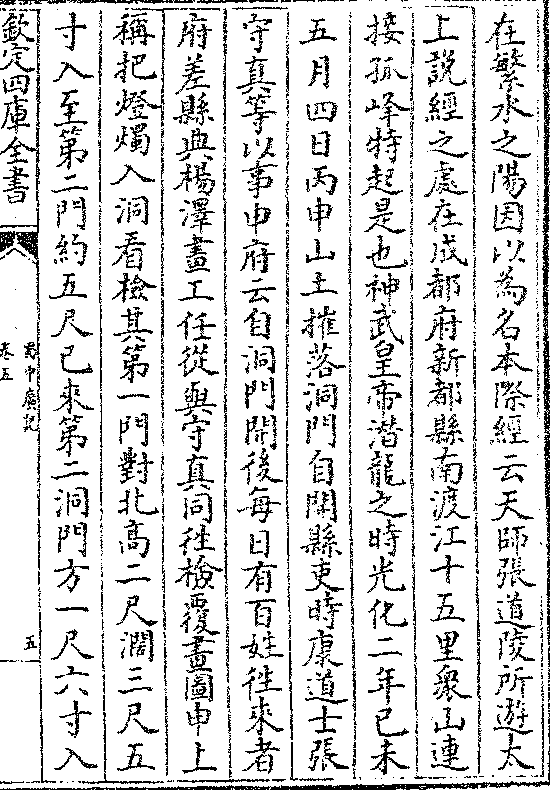 在繁水之陽因以為名本際經云天師張道陵所遊太
上說經之處在成都府新都縣南渡江十五里衆山連
接孤峰特起是也神武皇帝潛龍之時光化二年已未
五月四日丙申山土摧落洞門自開縣吏時康道士張
守真等以事申府云自洞門開後每日有百姓徃來者
府差縣典楊澤畫工任從與守真同徃檢覆畫圖申上
稱把燈燭入洞看檢其第一門對北高二尺濶三尺五
寸入至第二門約五尺已來第二洞門方一尺六寸入
欽定四庫全書
蜀中廣記
卷五
五